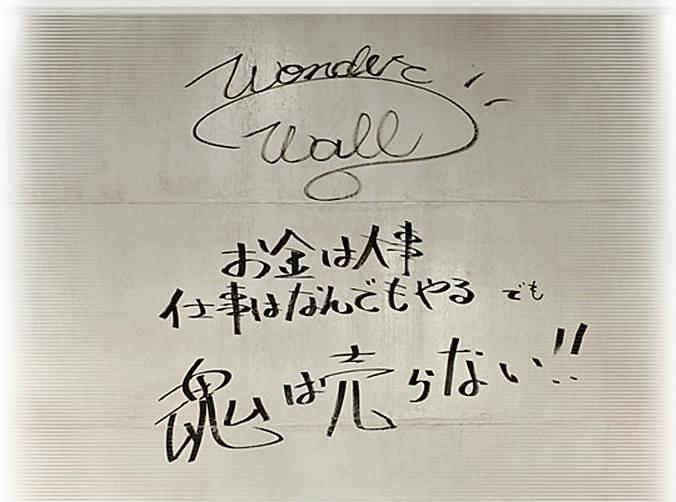 Wonder
Wall
お金は人事
仕事はなんでもやる でも
魂は売らない!!